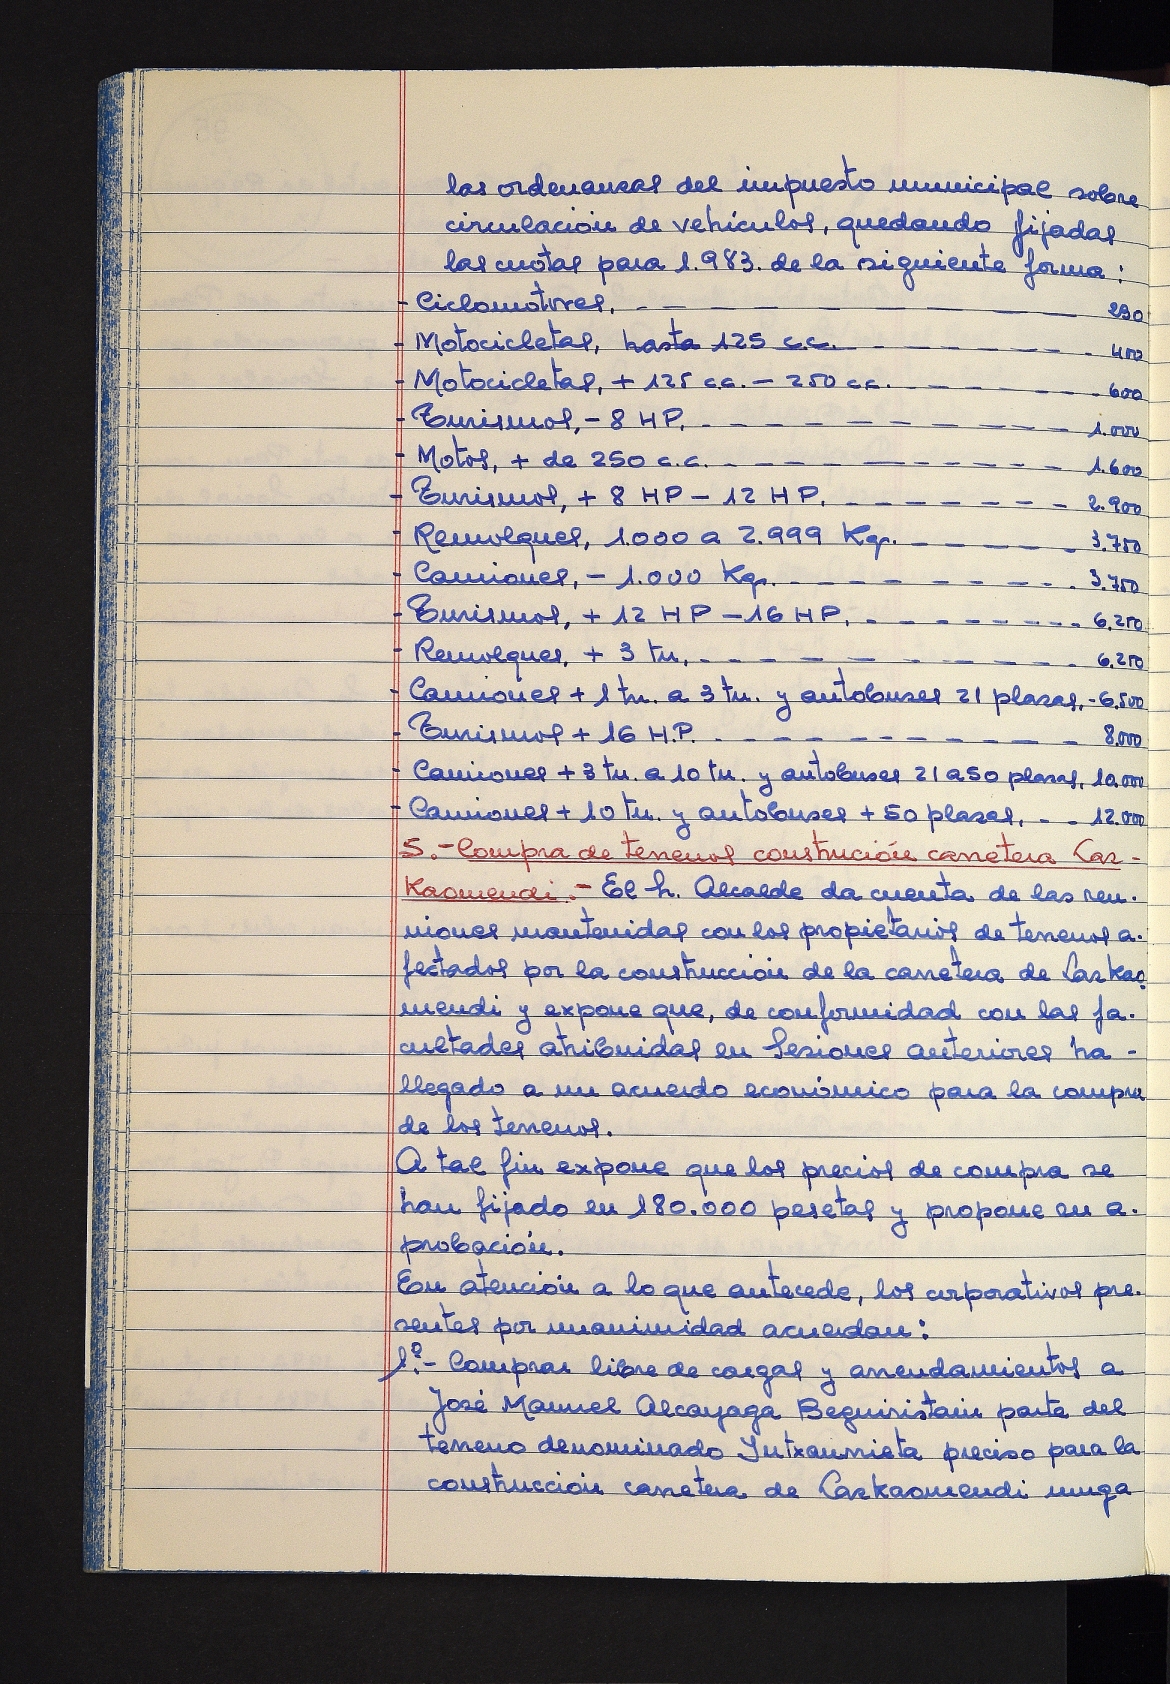 las ordenanzas del impuesto municipal sobre
circulación de vehículos, quedando fijadas
las cuotas para 1.983. de la siguiente forma:
- Ciclomotores, - - - - - - - - - 290
- Motocicletas, hasta 125 c.c. - - - - - - 400
- Motocicletas, + 125 c.c. - 250 c.c. - - - - - 600
- Turismos, - 8 HP. - - - - - - - - - 1.000
- Motos, + de 250 c.c. - - - - - - - - 1.600
- Turismos, + 8 HP - 12 HP. - - - - - - 2.900
- Remolques, 1.000 a 2.999 Kgr. - - - - - 3.750
- Camiones, - 1.000 Kgr. - - - - - - - 3.750
- Turismos, + 12 HP - 16 HP. - - - - - - 6.250
- Remolques, + 3 tn. - - - - - - - - - 6.250
- Camiones + 1 tn. a 3 tn. y autobuses 21 plazas, - 6.500
- Turismos + 16 H.P. - - - - - - - - - 8.000
- Camiones + 3 tn. a 10 tn. y autobuses 21 a 50 plazas, 10.000
- Camiones + 10 tn. y autobuses + 50 plazas, - - 12.000
5.- Compra de terrenos construción carretera Laz-
kaomendi.- El h. Alcalde da cuenta de las reu-
niones mantenidas con los propietarios de terrenos a-
fectados por la construcción de la carretera de Lazkao
mendi y expone que, de conformidad con las fa-
cultades atribuidas en Sesiones anteriores ha -
llegado a un acuerdo económico para la compra
de los terrenos.
A tal fin expone que los precios de compra se
han fijado en 180.000 pesetas y propone en a-
probación.
En atención a lo que antecede, los corporativos pre-
sentes por unanimidad acuerdan:
1º.- Comprar libre de cargas y arrendamientos a
José Manuel Alcayaga Beguiristain parte del
terreno denominado Intxaurrieta preciso para la
construcción carretera de Lazkaomendi muga